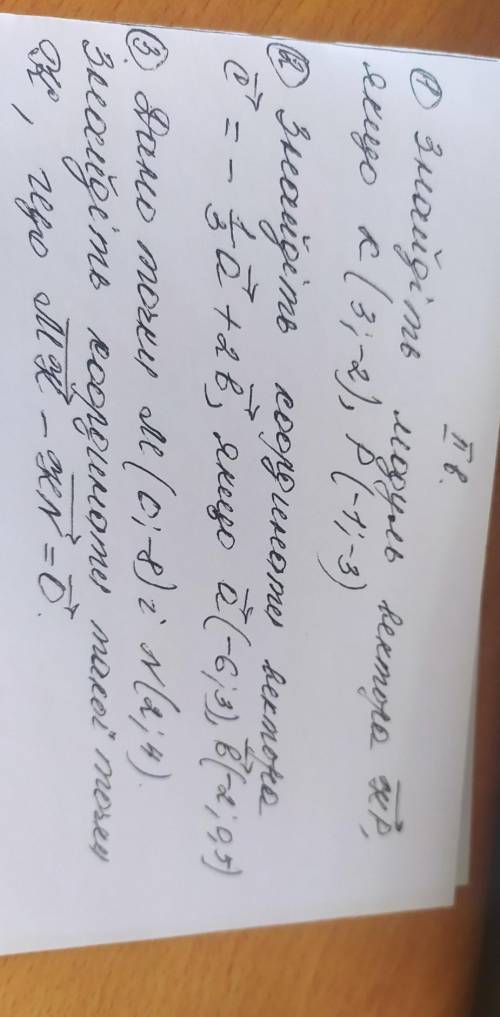 II в.
① Знайдіть модуль вектора KP,
якщо K(3;-2), P(-1;-3)
② Знайдіть координати вектора
c = -1/3 a + 2b, якщо a(-6;3), b(-2;0,5)
③. Дано точки M(0;-8) і N(2;4).
Знайдіть координати такої точки
K, що MK - KN = 0.